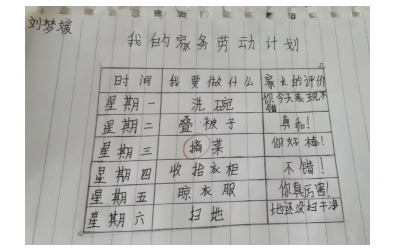 刘梦媛
我的家务劳动计划
时间 我要做什么 家长的评价
星期一 洗碗 你今天表现不错
星期二 叠被子 真乖!
星期三 摘菜 你好棒!
星期四 收拾衣柜 不错!
星期五 晾衣服 你真厉害!
星期六 扫地 地还没扫干净